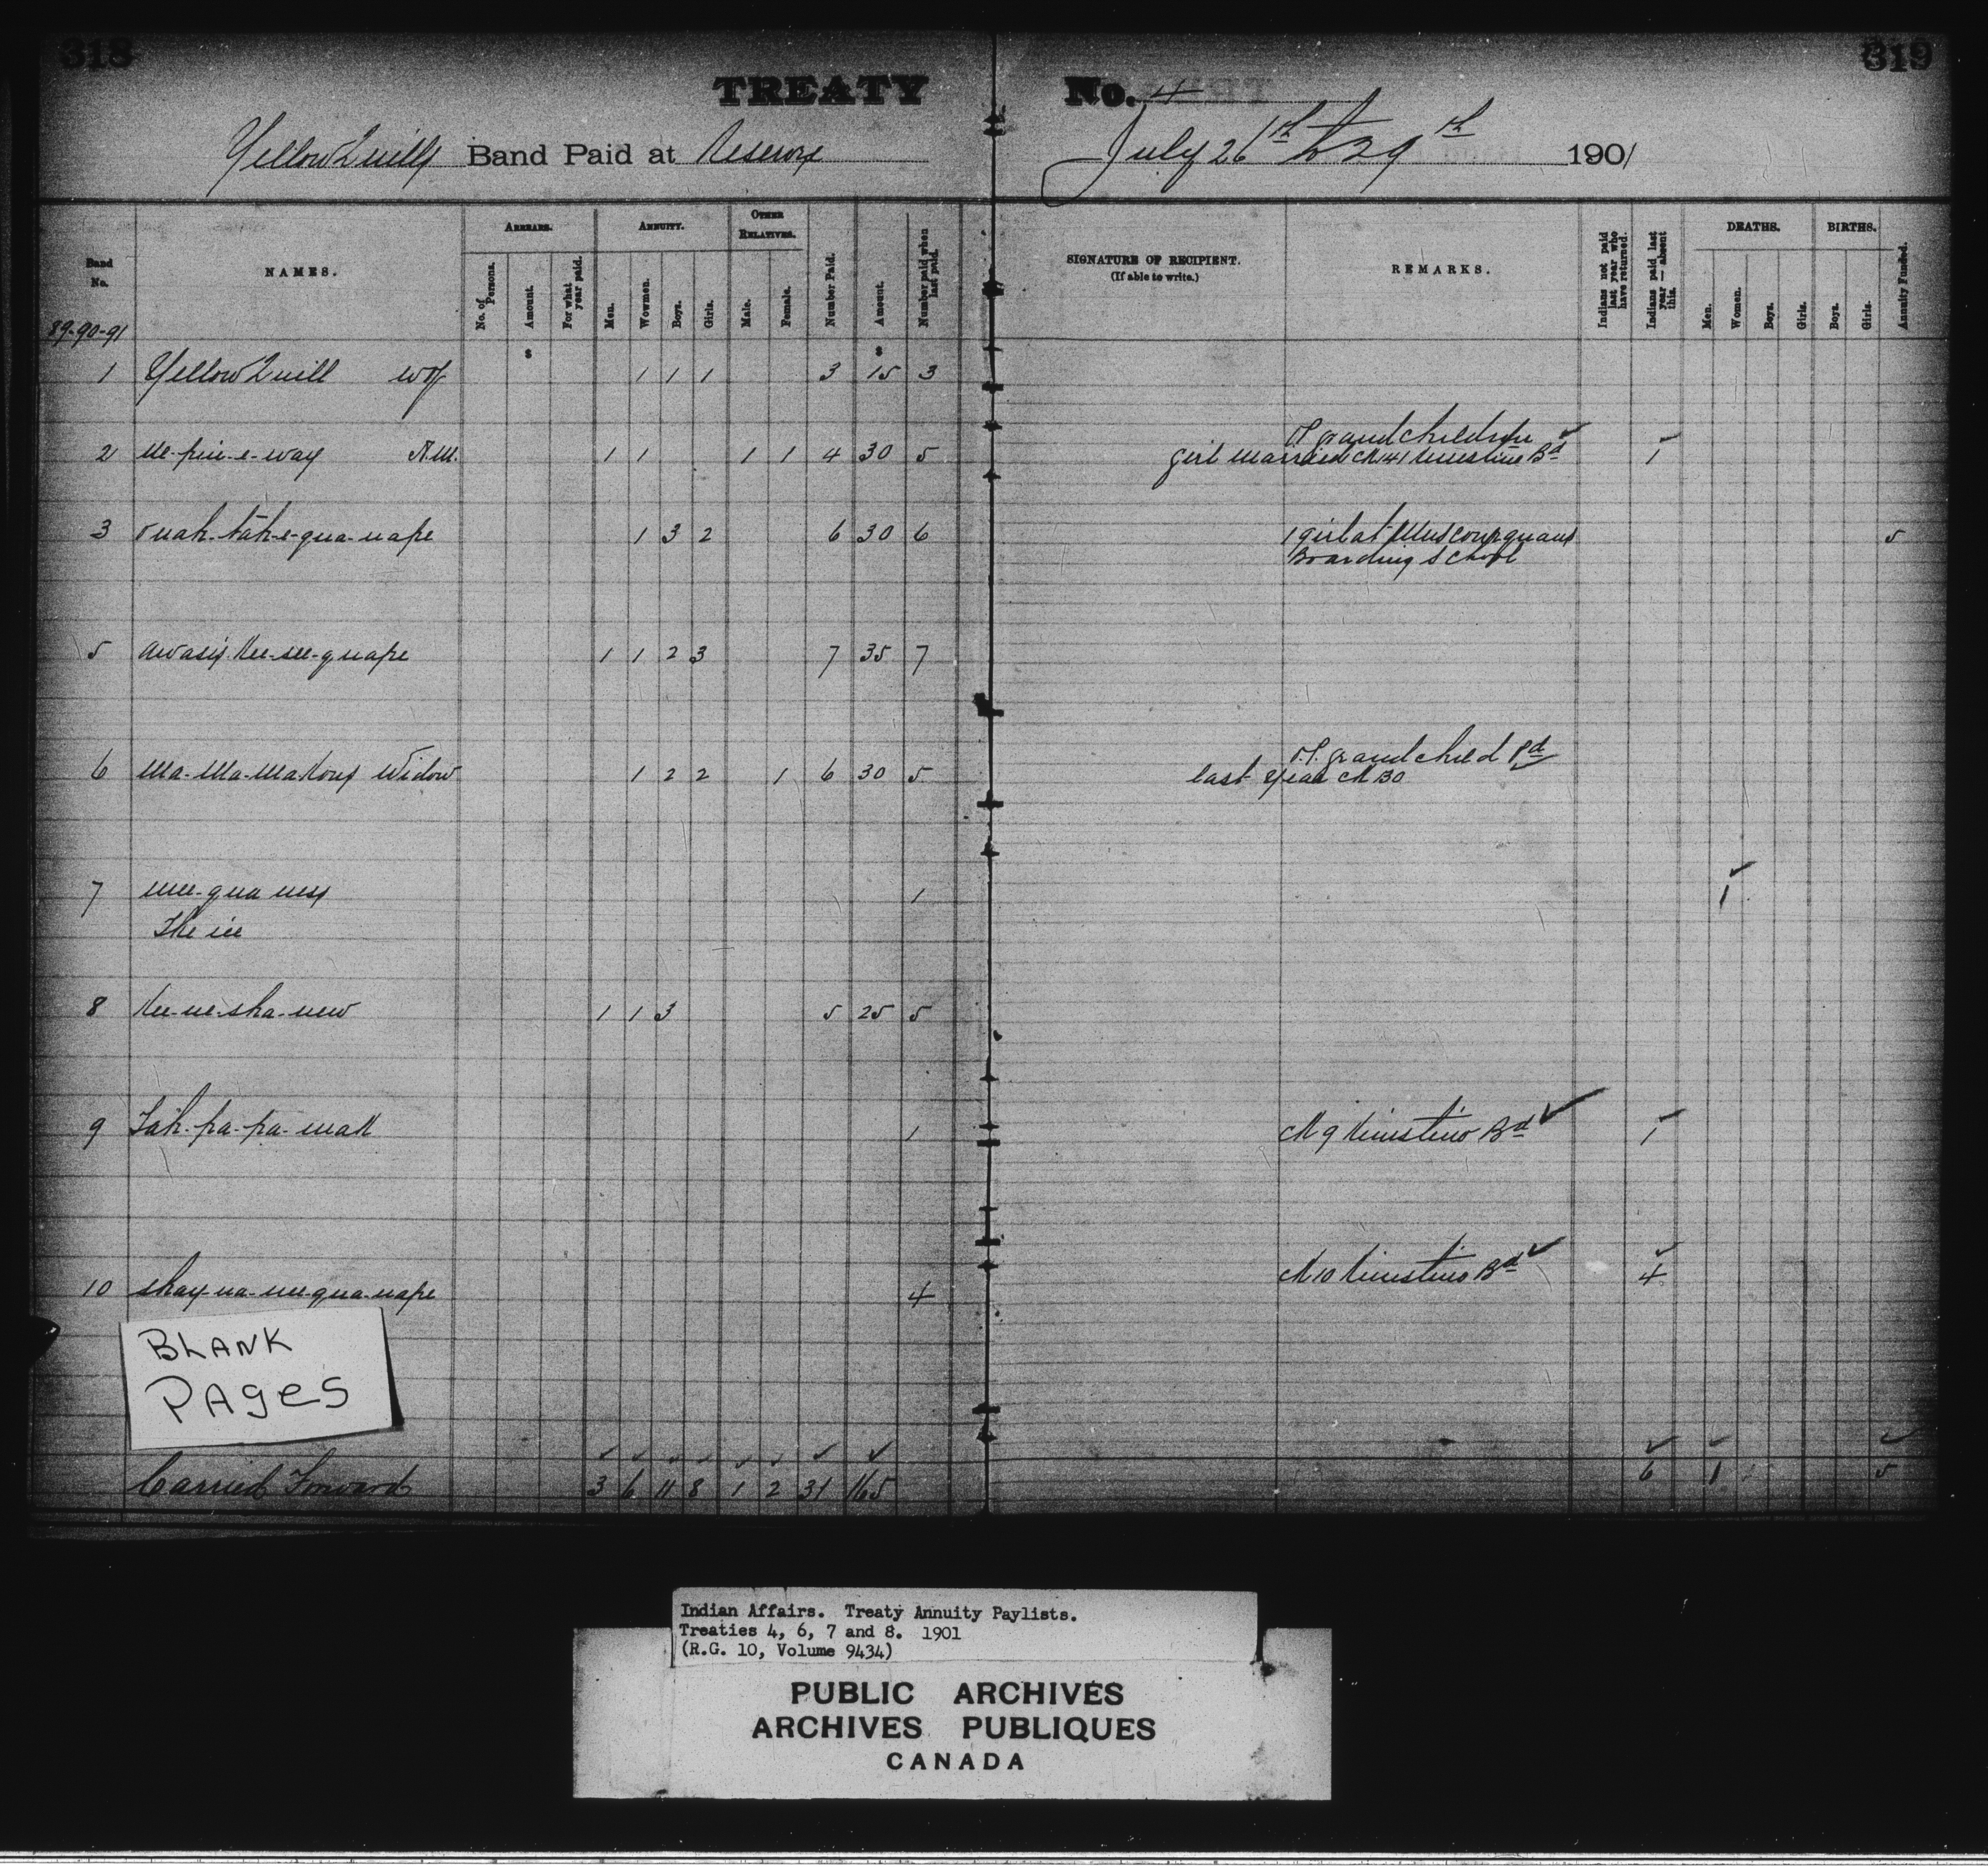 318
319
TREATY No. 4
Yellow Quills Band Paid at Reserve July 26th to 29th 1901
Band No.
NAMES.
ARREARS.
No. of Persons.
Amount.
For what year paid.
ANNUITY.
Men.
Women.
Boys.
Girls.
OTHER RELATIVES.
Male.
Female.
Number Paid.
Amount.
Number paid when last paid.
SIGNATURE OF RECIPIENT.
(If able to write.)
REMARKS.
Indians not paid last year who have returned.
Indians paid last year — absent this.
DEATHS.
Men.
Women.
Boys.
Girls.
BIRTHS.
Boys.
Girls.
Annuity Funded.
89-90-91
$ $
1 Yellow Quill wof 1 1 1 3 15 3
O.P. grandchildren
2 R.M. 1 1 1 1 4 30 5 girl married CK 41 Kinistino Bd 1
3 6 30 6 1 3 2 1 girl at Muscowequans 5
Boarding School
5 Awasis Kee-see-quape 1 1 2 3 7 35 7
O.P. grandchild Pd
6 Ma-Ma-Ma Kous Widow 1 2 2 1 6 30 5 last year CK 30
7 1 1
8 Kee-we-sha-wew 1 1 3 5 25 5
9 Tah-pa-pa-mak 1 CK 9 Kinistino Bd 1
10 4 CK 10 Kinistino Bd 4
BLANK
PAGES
Carried Forward 3 6 11 8 1 2 31 165 6 1 5
Indian Affairs. Treaty Annuity Paylists.
Treaties 4, 6, 7 and 8. 1901
(R.G. 10, Volume 9434)
PUBLIC ARCHIVES
ARCHIVES PUBLIQUES
CANADA